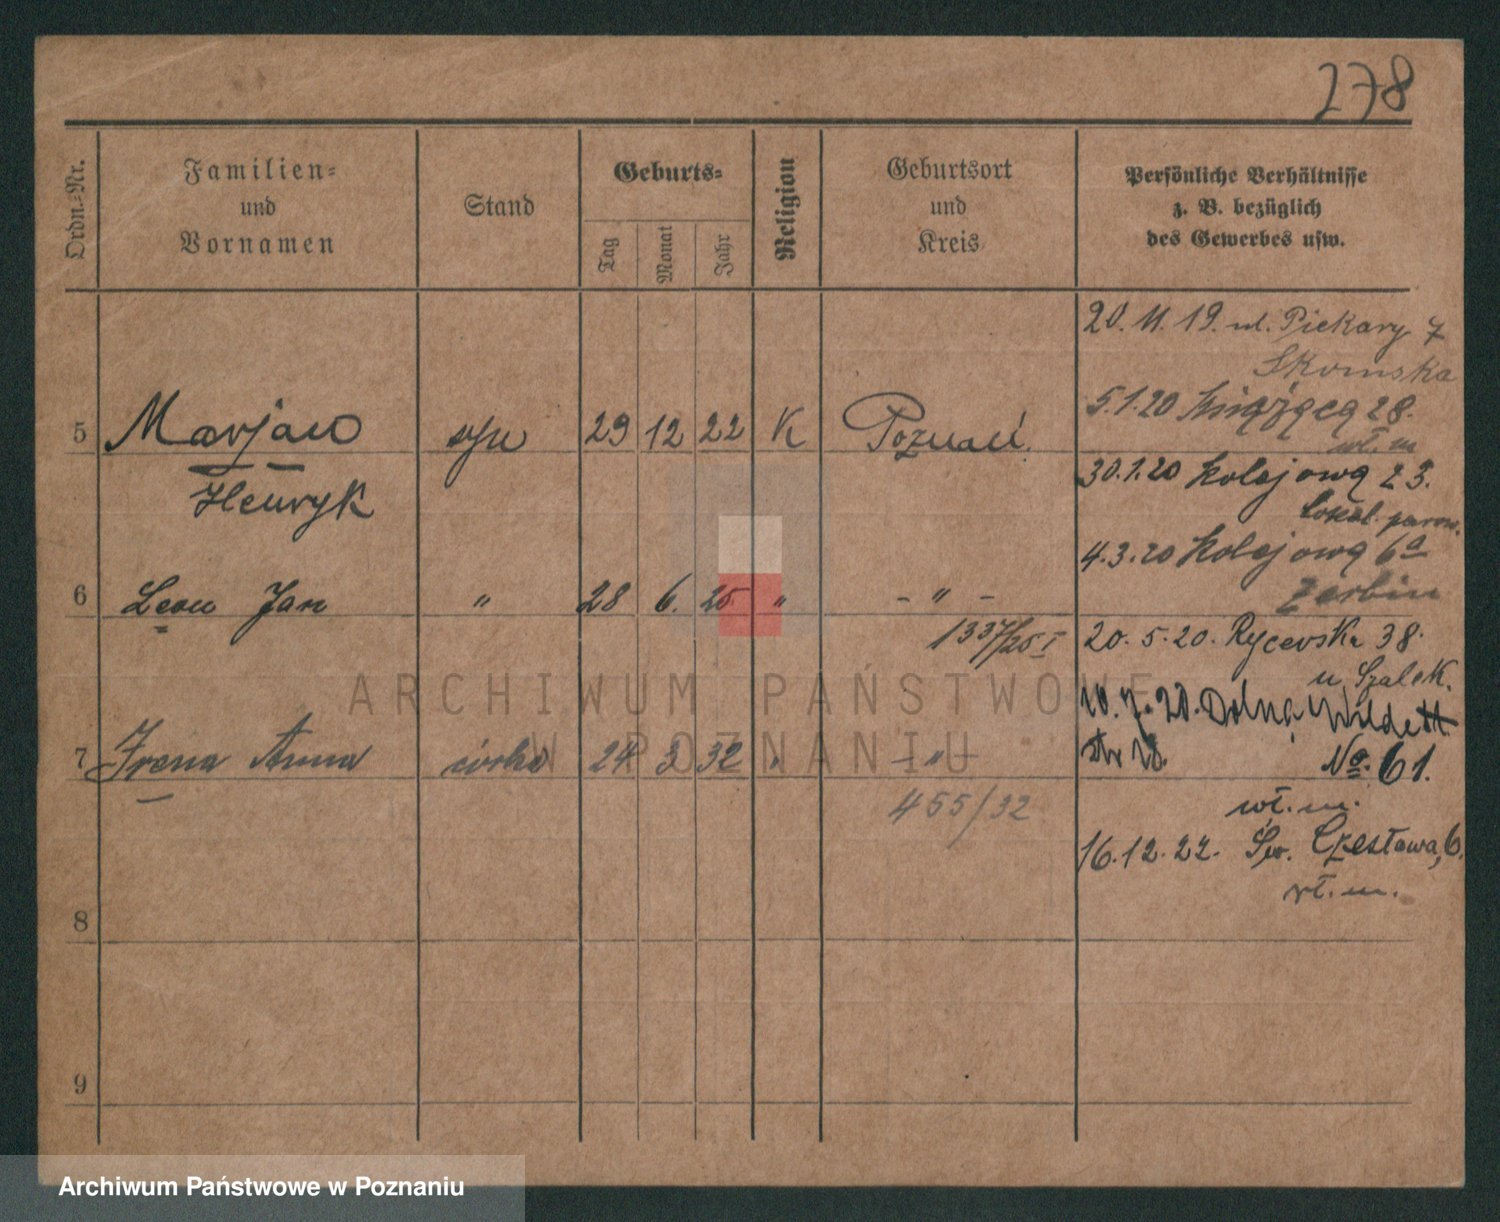 278
Ordn.-Nr.
Familien-
und
Vornamen
Stand
Geburts-
Tag
Monat
Jahr
Religion
Geburtsort
und
Kreis
Persönliche Verhältnisse
z. B. bezüglich
des Gewerbes usw.
20. 11. 19. ul. Piekary 7
Skomska
5.1.20 Książęcą 28.
wł. m
5 Marjan syn 29 12 22 K Poznań.
Henryk
30.1.20 Kolejową 23.
Lokal. parow.
4.3.20 Kolejową 6a
Zerbin
6 Leon Jan " 28 6. 25 " - " -
1337/25 I
20. 5. 20. Rycerska 38.
u Szalek.
10. 7. 20. Dolna Wilde
str 18. No. 61.
7 Irena Anna córka 24 3 32 " - " -
455/32
wł. m.
16. 12. 22. Św. Czesława, 6.
wł. m.
8
9
ARCHIWUM PAŃSTWOWE
W POZNANIU
Archiwum Państwowe w Poznaniu